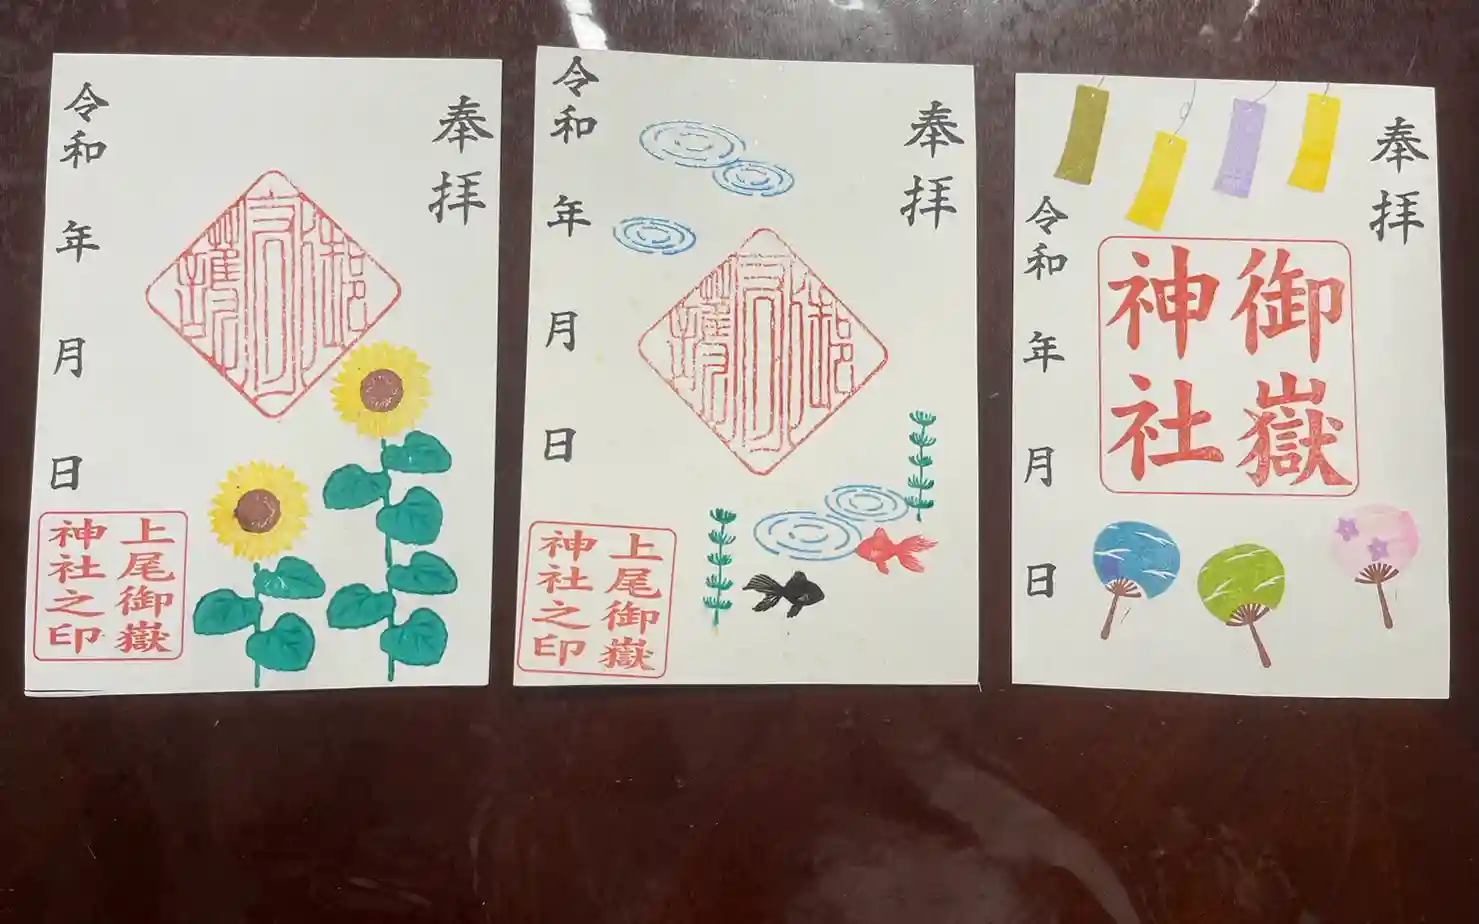 奉拝
令和 年 月 日
上尾御嶽
神社之印
奉拝
令和 年 月 日
上尾御嶽
神社之印
奉拝
御嶽
神社
令和 年 月 日